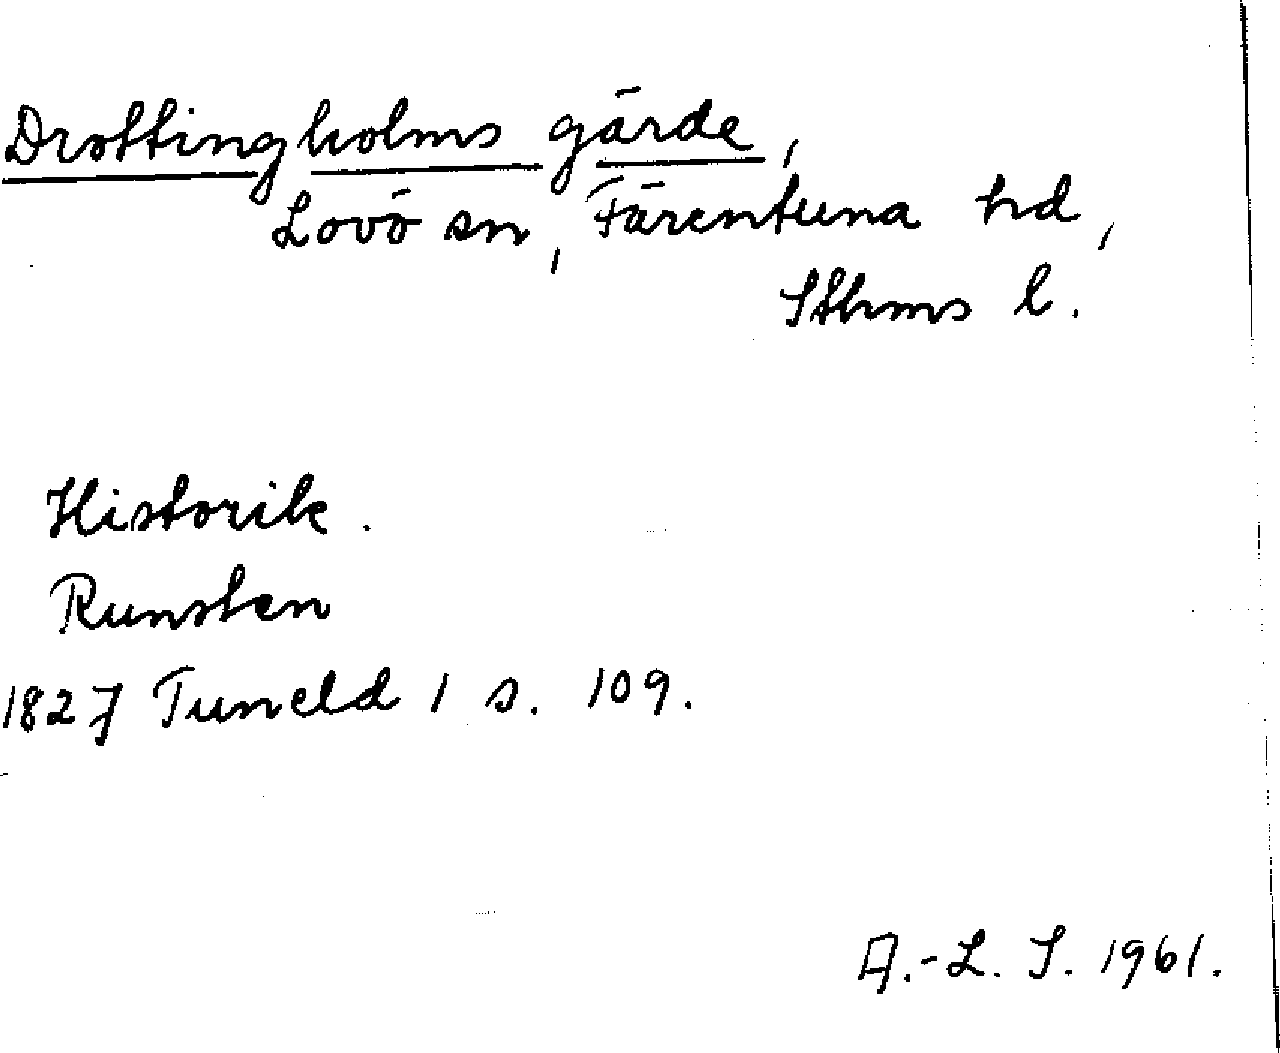 Drottingholms gärde,
Lovö sn, Färentuna hd,
Sthms l.
Historik.
Runsten
1827 Tuneld 1 s. 109.
A.-L. S. 1961.